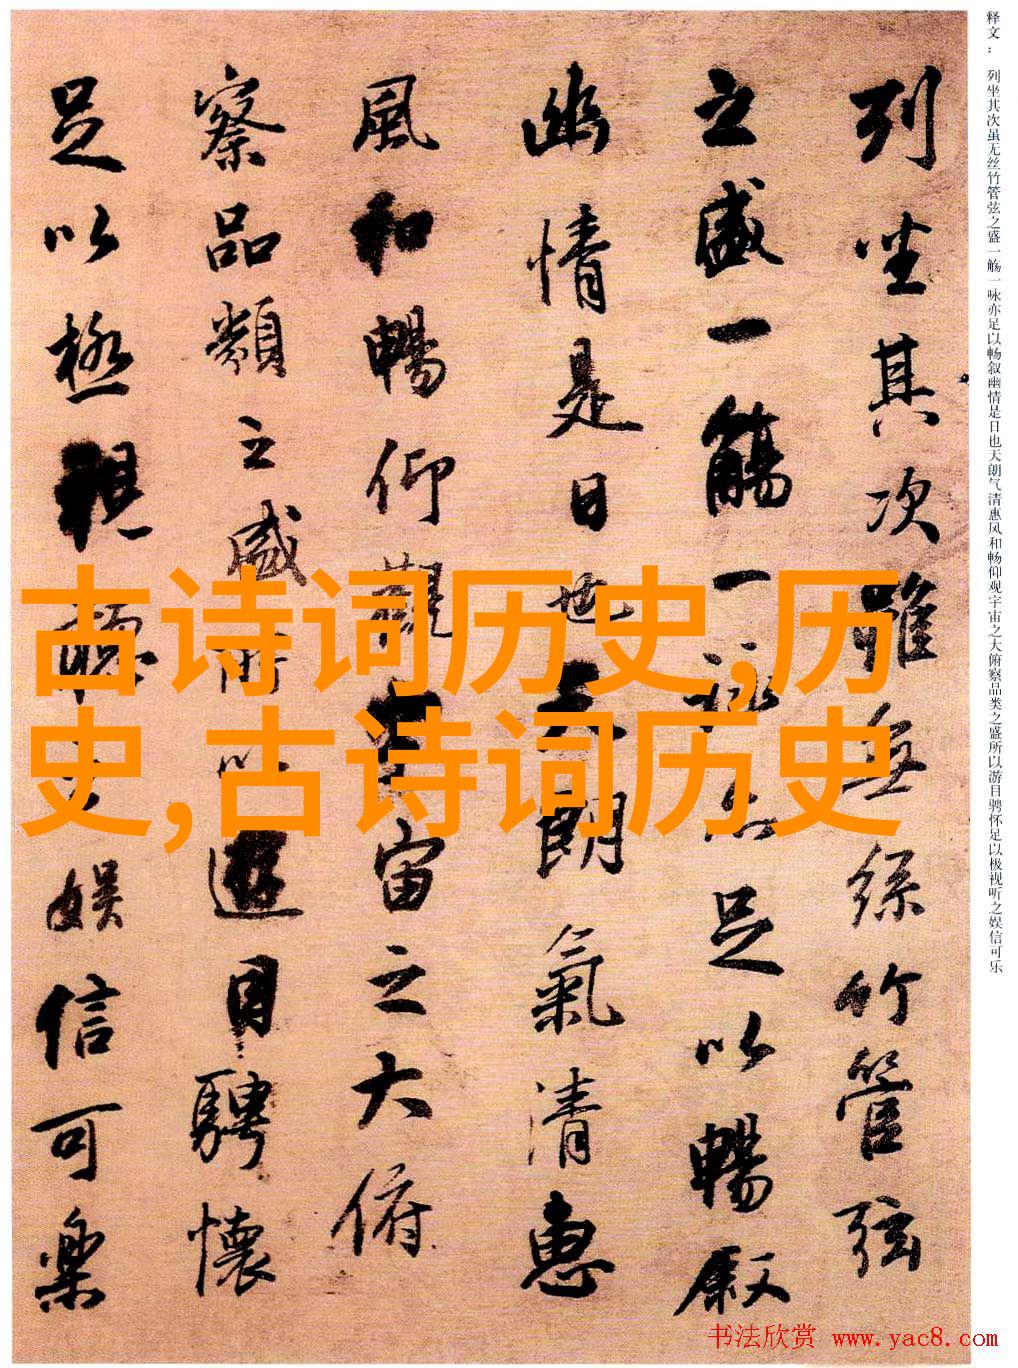 释文：列坐其次虽无丝竹管弦之盛一觞一咏亦足以畅叙幽情是日也天朗气清惠风和畅仰观宇宙之大俯察品类之盛所以游目骋怀足以极视听之娱信可乐
列坐其次雖無絲竹管弦
之盛一觴一詠亦足以暢叙
幽情是日也天朗氣清惠
風和暢仰觀宇宙之大俯
察品類之盛所以遊目騁懷
足以極視聽之娱信可樂
古诗词历史,历
史,古诗词历史
书法欣赏 www.yac8.com